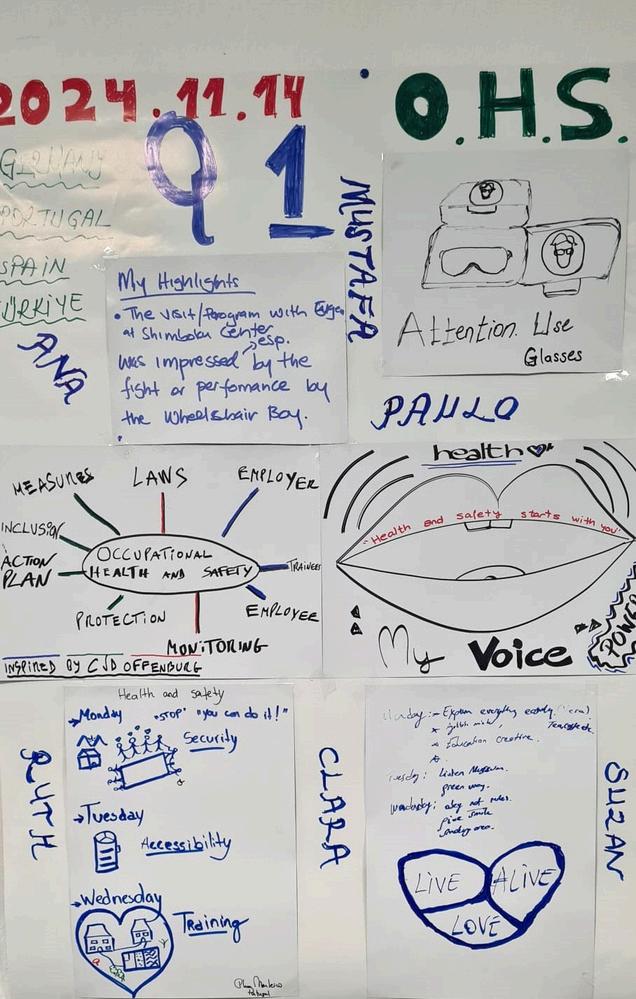 2024.11.14
O.H.S.
Q1
GERMANY
PORTUGAL
SPAIN
TÜRKİYE
ANA
MUSTAFA
My Highlights
• The visit/Program with
at Shimboku Center
esp.
was impressed by the
fight or perfomance by
the Wheelshair Boy.
Attention. Use
Glasses
PAULO
MEASURES
LAWS
EMPLOYER
INCLUSION
ACTION
PLAN
OCCUPATIONAL
HEALTH AND SAFETY
TRAINEES
PROTECTION
EMPLOYEE
MONITORING
INSPIRED BY CJD OFFENBURG
health
"Health and safety starts with you"
My Voice
POWER
RUTH
CLARA
SUZAN
Health and safety
→Monday "STOP" "you can do it!"
Security
→Tuesday
Accessibility
→Wednesday
Training
Portugal
Monday: Explain everything
Education creative.
Tuesday: Listen Museum.
green way.
Wednesday: obey rules.
LIVE
ALIVE
LOVE